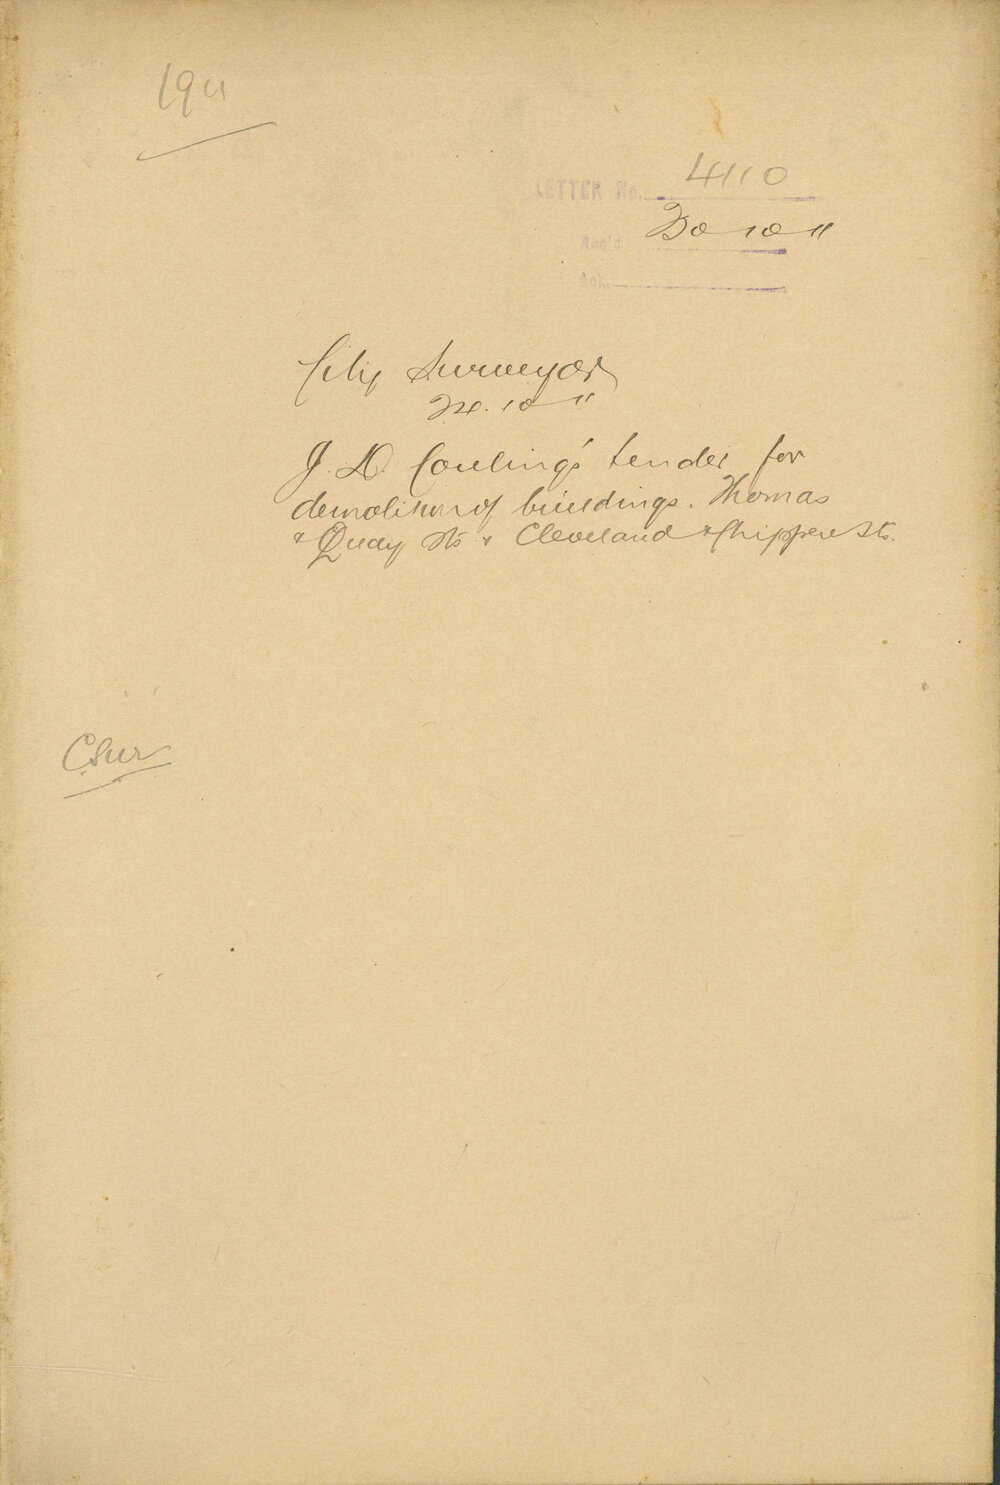 1911
LETTER No. 4110
Rec'd 30 10 11
Ack.
City Surveyor
10 11
J. D. Cowling's tender for
demolition of buildings. Thomas
& Quay Sts & Cleveland & Chippen Sts.
C. Sur